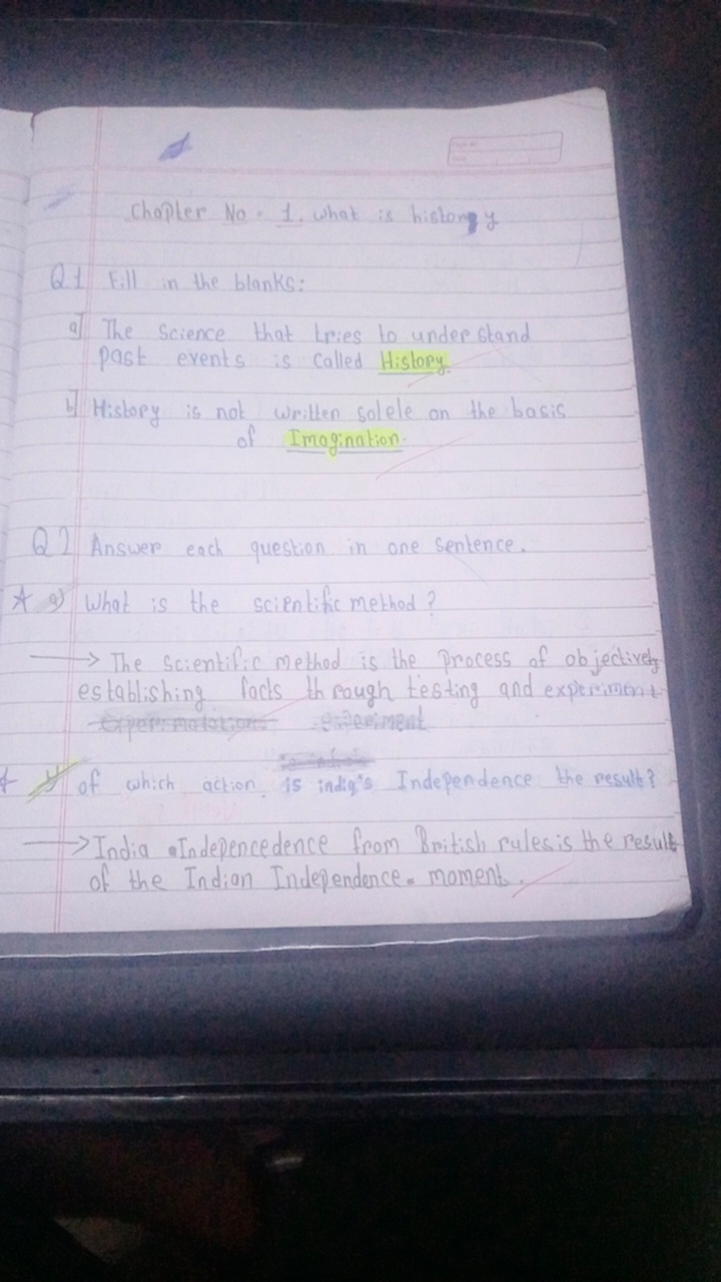 Chapter No. 1. what is history
Q1 Fill in the blanks:
a] The Science that tries to understand
past events is called History.
b] History is not written solele on the basis
of Imagination.
Q2 Answer each question in one sentence.
a) What is the scientific method?
→ The Scientific method is the process of objectively
establishing facts through testing and experiment
experiment
of which action is india's Independence the result?
→ India Indepencedence from British rules is the result
of the Indian Independence. moment.